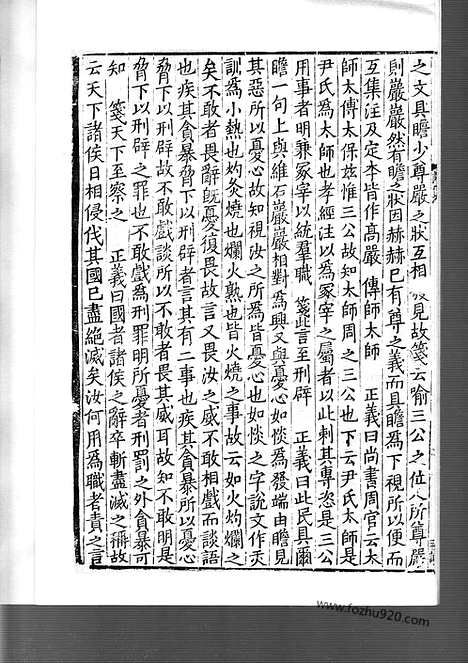 之文具瞻少尊嚴之狀互相 見故箋云喻三公之位人所尊嚴
則嚴嚴然有瞻之狀因赫赫巳有尊之義而具瞻爲下視所以便而
互集注及定本皆作高嚴 傳師太師 正義曰尚書周官云太
師太傅太保兹惟三公故知太師周之三公也下云尹氏太師是
尹氏爲太師也孝經注以爲冢宰之屬者以此刺其專恣是三公
用事者明兼冢宰以統羣職 箋此言至刑辟 正義曰此民具爾
瞻一句上與維石巖巖相對爲興又與憂心如惔爲發端由瞻見
其惡所以憂心故知視汝之所爲皆憂心也如惔之字說文作㶣
訓爲小熱也灼灸燒也爛火熟也皆火燒之事故云如火灼爛之
矣不敢者畏辭旣憂復畏故言又畏汝之威不敢相戲而談語
也疾其貪暴脅下以刑辟者言其有二事也疾其貪暴所以憂心
脅下以刑辟故不敢戲談所以不敢者畏其威耳故知不敢戲談是畏其
脅下以刑辟之罪也不敢戲爲刑罪明所憂者刑罰之外貪暴可
知 箋天下至察之 正義曰國者諸侯之辭卒斬盡滅之稱故
云天下諸侯日相侵伐其國巳盡絕滅矣汝何用爲職者責之言
www.fozhu920.com